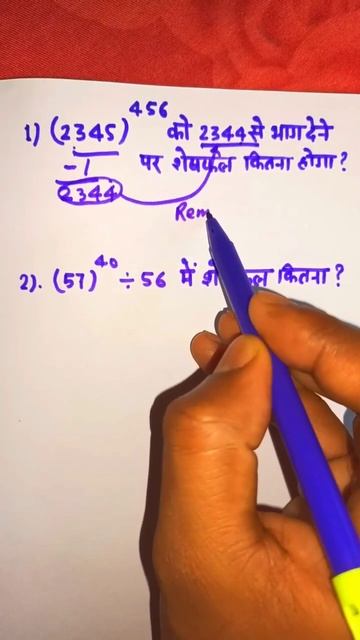 1) (2345)^456 को 2344 से भाग देने
-1 पर शेषफल कितना होगा?
2344
Rem
2). (57)^40 ÷ 56 में कितना?